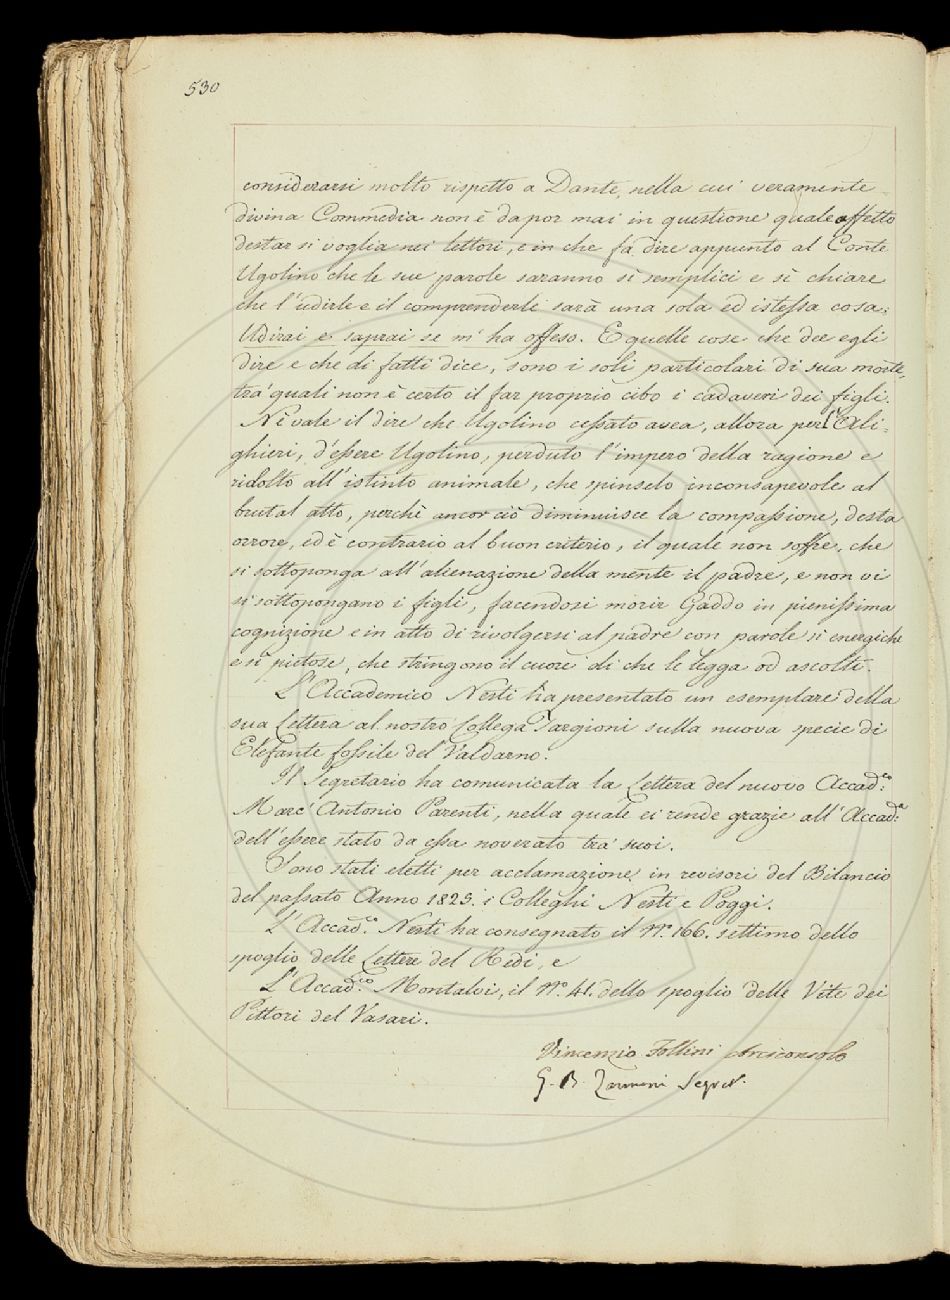 530
considerarsi molto rispetto a Dante, nella cui veramente
divina Commedia non è da por mai in questione quale affetto
destar si voglia nei lettori, e in che fa dire appunto al Conte
Ugolino che le sue parole saranno sì semplici e sì chiare
che l'udirle e il comprenderle sarà una sola ed istessa cosa:
Udirai e saprai se m'ha offeso. E quelle cose che dee egli
dire e che di fatti dice, sono i soli particolari di sua morte,
tra' quali non è certo il far proprio cibo i cadaveri dei figli.
Nè vale il dire che Ugolino cessato avea, allora per l'Ali=
ghieri, d'essere Ugolino, perduto l'impero della ragione e
ridotto all'istinto animale, che spinselo inconsapevole al
brutal atto, perchè ancor ciò diminuisce la compassione, desta
orrore, ed è contrario al buon criterio, il quale non soffre, che
si sottoponga all'alienazione della mente il padre, e non vi
si sottopongano i figli, facendosi morir Gaddo in pienissima
cognizione e in atto di rivolgersi al padre con parole sì energiche
e sì pietose, che stringono il cuore di che le legga od ascolti.
L'Accademico Nesti ha presentato un esemplare della
sua Lettera al nostro Collega Targioni sulla nuova specie di
Elefante fossile del Valdarno.
Il Segretario ha comunicata la Lettera del nuovo Accad.co
Marc'Antonio Parenti, nella quale ei rende grazie all'Accad.a
dell'essere stato da essa noverato tra' suoi.
Sono stati eletti per acclamazione in revisori del Bilancio
del passato Anno 1825. i Colleghi Nesti e Poggi.
L'Accad.co Nesti ha consegnato il N.o 166. settimo dello
spoglio delle Lettere del Redi, e
L'Accad.co Montalvi, il N.o 41. dello spoglio delle Vite dei
Pittori del Vasari.
Vincenzio Follini Arciconsolo
G. B. Zannoni Segret.